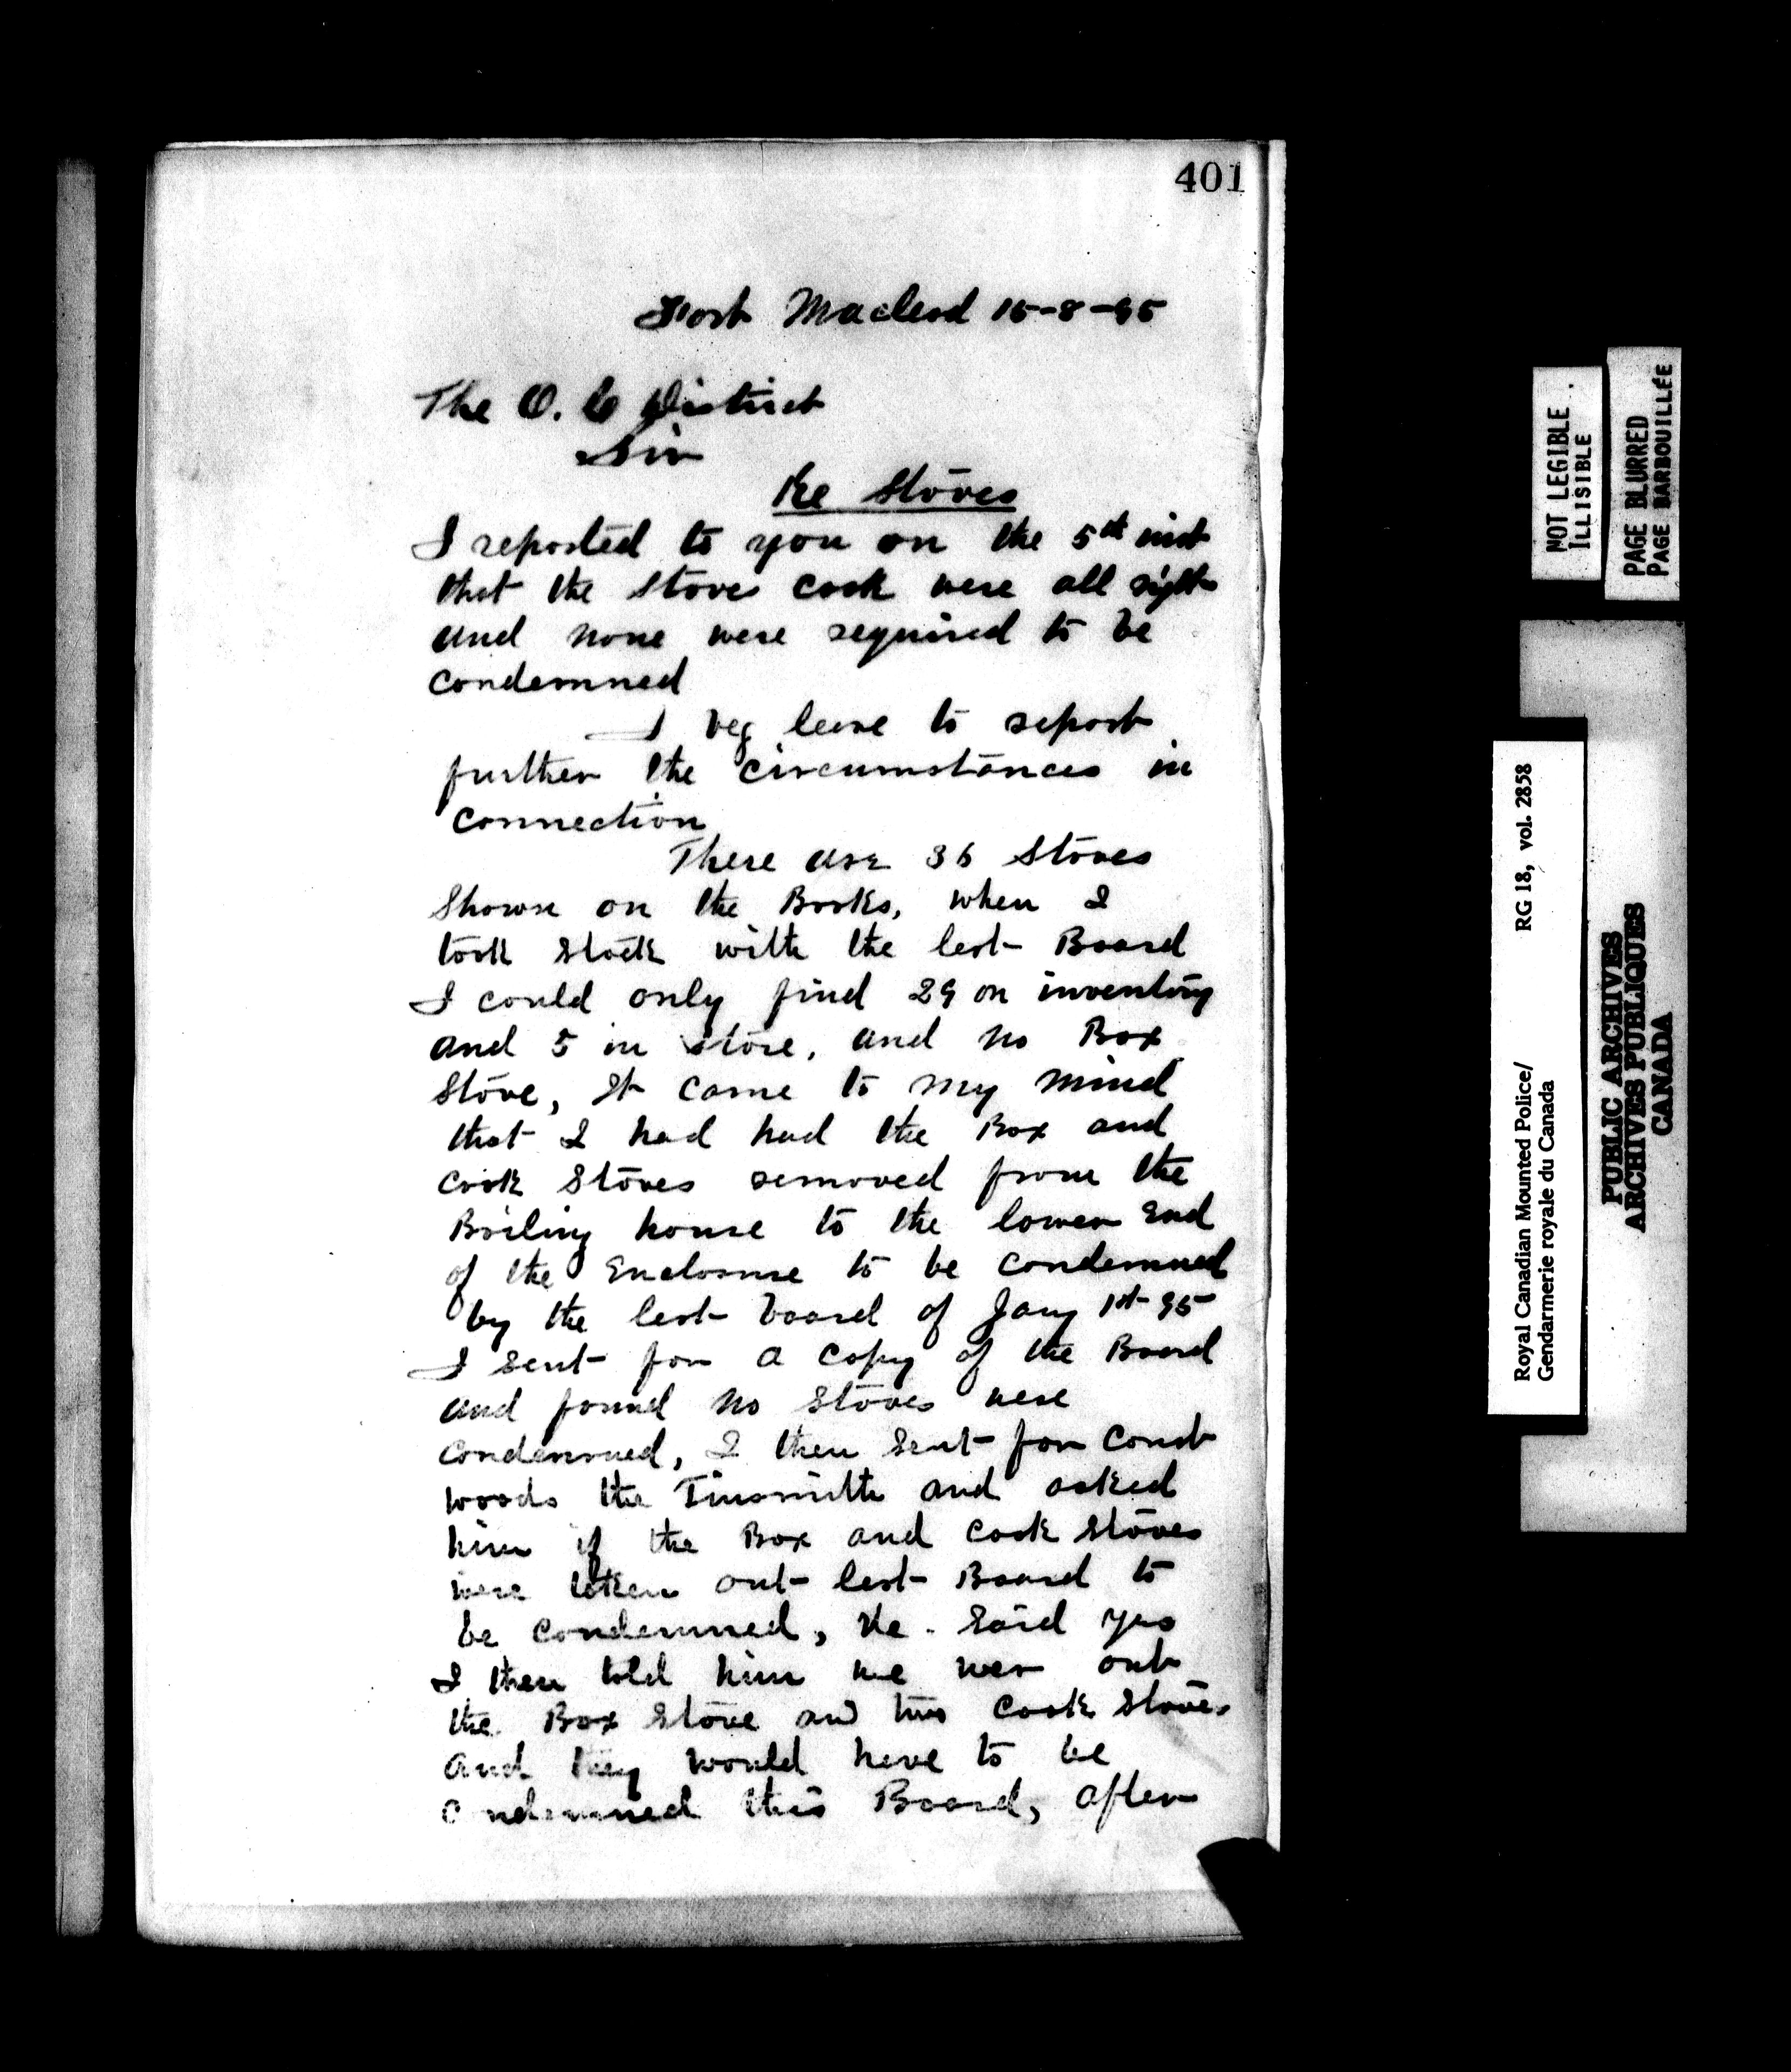 401
Fort Macleod 15-8-95
The O. C District
Sir
Re Stoves
I reported to you on the 5th inst
that the Stoves Cook were all right
and none were required to be
condemned
I beg leave to report
further the circumstances in
connection
There are 36 Stoves
Shown on the Books, when I
took Stock with the last Board
I could only find 29 on inventory
and 5 in store, and no Box
Stove, It came to my mind
that I had had the Box and
Cook Stoves removed from the
Boiling house to the lower End
of the Enclosure to be condemned
by the last board of Jany 1st 95
I sent for a copy of the Board
and found no Stoves were
condemned, I then sent for Const
Woods the Tinsmith and asked
him if the Box and Cook Stoves
were taken out last Board to
be condemned, He. Said yes
I then told him we wer out
the Box Stove and two Cook Stoves
and they would have to be
condemned this Board, after
NOT LEGIBLE
ILLISIBLE
PAGE BLURRED
PAGE BARBOUILLÉE
Royal Canadian Mounted Police/ RG 18, vol. 2858
Gendarmerie royale du Canada
PUBLIC ARCHIVES
ARCHIVES PUBLIQUES
CANADA